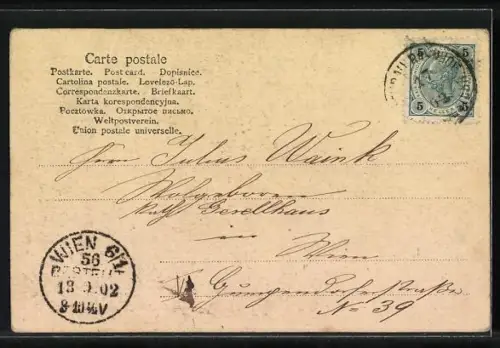 Carte postale
Postkarte. Post card. Dopisnice.
Cartolina postale. Levelező-Lap.
Correspondenzkarte. Briefkaart.
Karta korespondencyjna.
Pocztówka. Открытое письмо.
Weltpostverein.
Union postale universelle.
5 5
5 5
Herrn Julius Waink
Wolgeboren
Kath Gesellhaus
in
Wien
Gumpendorferstraße
No 39
WIEN 6/1
56
BESTELLT
13.9.02
8-10½V